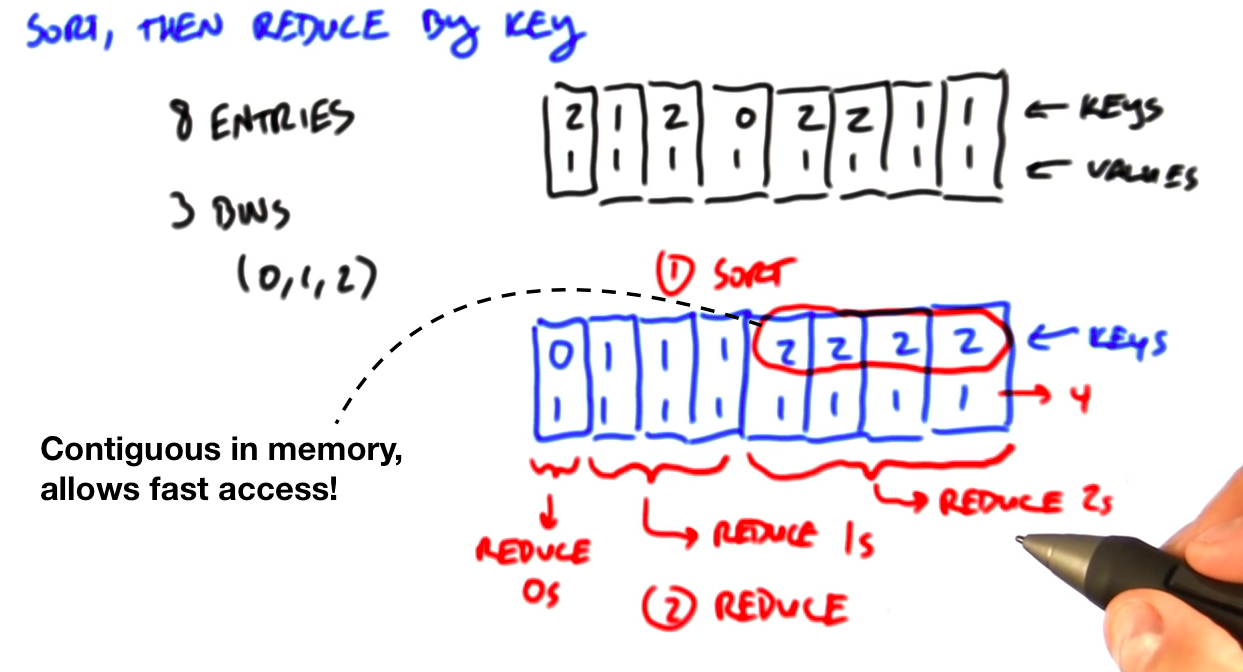 SORT, THEN REDUCE BY KEY
8 ENTRIES
3 BINS
(0,1,2)
2 1 2 0 2 2 1 1 ← KEYS
1 1 1 1 1 1 1 1 ← VALUES
① SORT
0 1 1 1 2 2 2 2 ← KEYS
1 1 1 1 1 1 1 1 → 4
Contiguous in memory,
allows fast access!
REDUCE 2s
REDUCE 1s
REDUCE
0s
② REDUCE